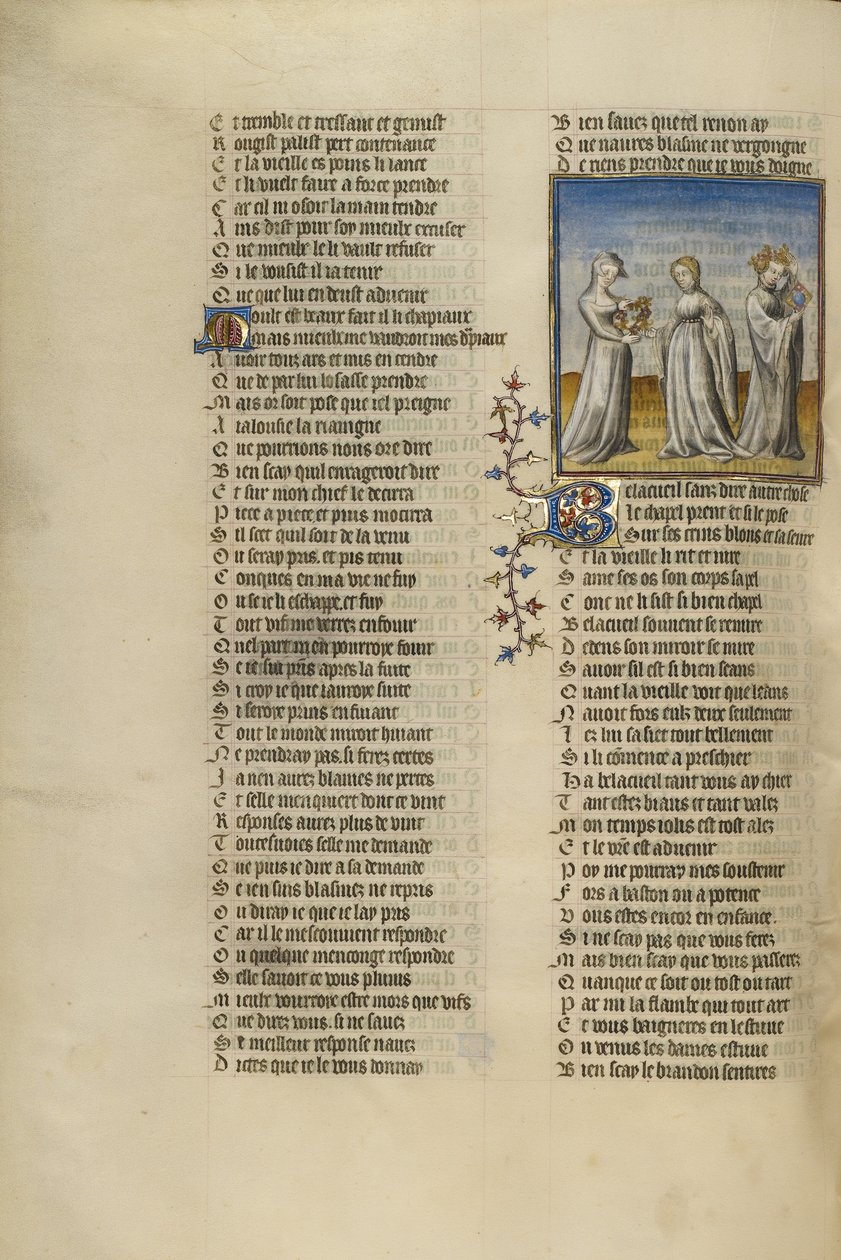 Et tremble et tressaut et gemist
Rougist palist pert contenance
Et la vieille es poins li lance
Et li vuelt faire a force prendre
Car cil ni osoit la main tendre
Ains dist pour soy mieulx excuser
Que mieulx le li vault refuser
Si le vousist il ia tenir
Que que lui en deust aduenir
Moult est beaux fait il li chapiaux
mais mieulx me vaudroit mes drapiaux
Auoir touz ars et mis en cendre
Que de par lui losasse prendre
Mais or soit pose que iel preigne
A ialousie la riaingne
Que pourrions nous ore dire
Bien scay quil enrageroit dire
Et sur mon chief le decirra
Piece a piece et puis mocirra
Sil scet quil soit de la venu
Ou seray pris et pis tenu
Conques en ma vie ne fuy
Ou se ie li eschappe et fuy
Tout vif me verrez enfouir
Quel part men pourroye fouir
Se ie sui pris apres la fuite
Si croy ie que iauroye suite
Si seroye prins en fuiant
Tout le monde miroit huiant
Ne prendray pas si ferez certes
Ja nen aurez blasmes ne pertes
Et selle menquiert dont ce vint
Responses aurez plus de vint
Toutesuoies selle me demande
Que puis ie dire a sa demande
Se ien suis blasmez ne repris
Ou diray ie que ie lay pris
Car il le mescouuient respondre
Ou quelque menconge respondre
Selle sauoit ce vous pluuis
Mieulx vourroye estre mors que vifs
Que direz vous si ne sauez
Se meilleur response nauez
Dictes que ie le vous donnay
Bien sauez que tel renon ay
Que naures blasme ne vergongne
De riens prendre que ie vous doigne
Belacueil sanz dire autre chose
le chapel prent et si le pose
Sur ses crins blons et sa seure
Et la vieille li rit et iure
Same ses os son corps sa pel
Conc ne li sist si bien chapel
Belacueil souuent se remire
Dedens son miroir se mire
Sauoir sil est si bien seans
Quant la vieille voit que leans
Nauoit fors eulx deux seulement
Lez lui sasiet tout bellement
Si li comence a preschier
Ha belacueil tant vous ay chier
Tant estez biaus et tant valez
Mon temps iolis est tost alez
Et le vre est aduenir
Poy me pourray mes soustenir
Fors a baston ou a potence
Vous estes encor en enfance.
Si ne scay pas que vous ferez
Mais bien scay que vous passerez
Quanque ce soit ou tost ou tart
Par mi la flambe qui tout art
Et vous baigneres en lestuue
Ou venus les dames estuue
Bien scay le brandon sentires